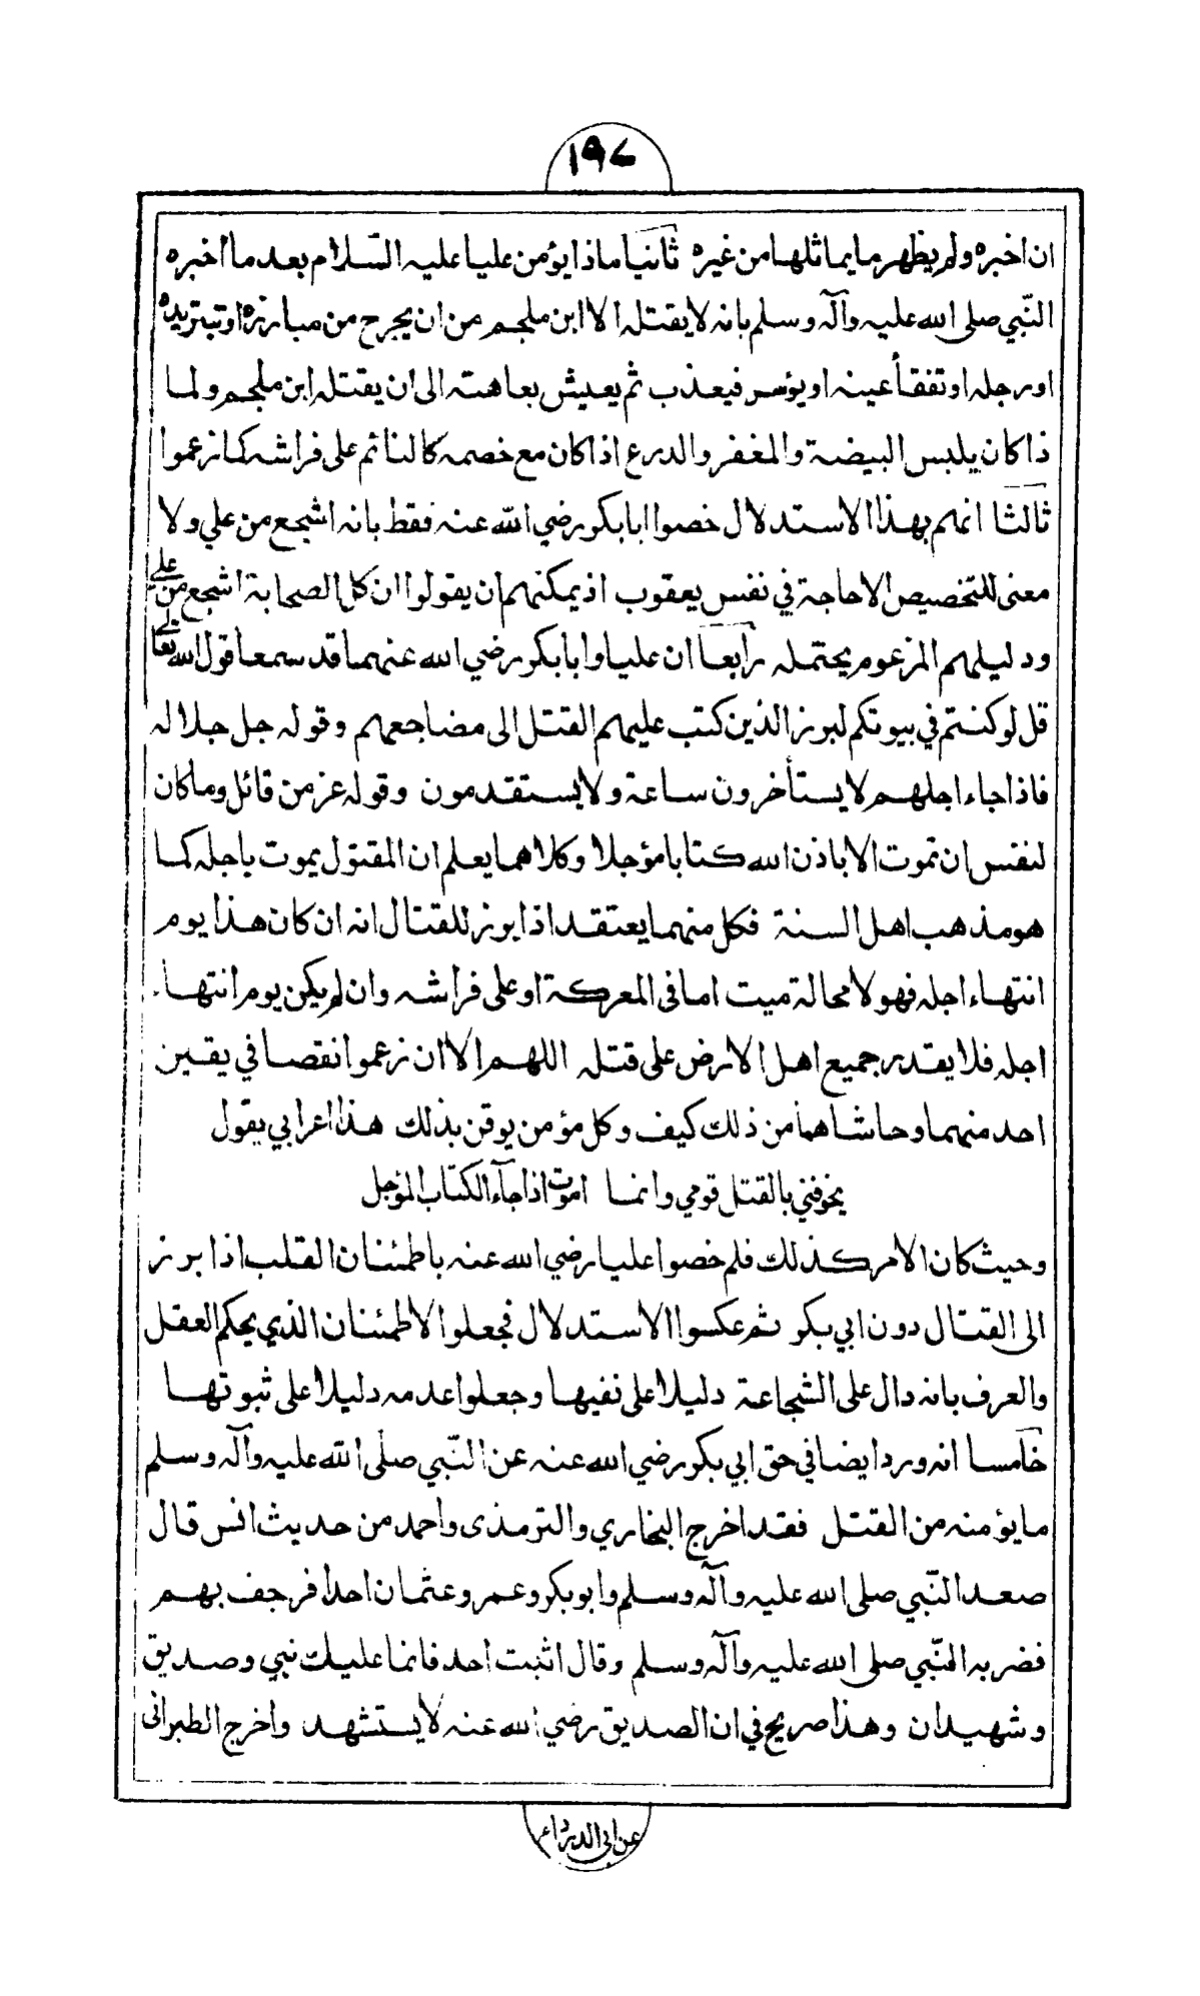 ١٩٤
ان اخبره ولم يظهر ما يماثلها من غيره ثانيا ماذا يؤمن عليا عليه السّلام بعد ما اخبره
النّبي صلى الله عليه وآله وسلم بانه لا يقتله الا ابن ملجم من ان يجرح من مبارزه او تبتر يده
او رجله او تفقأ عينه او يؤسر فيعذب ثم يعيش بعاهته الى ان يقتله ابن ملجم ولما
ذا كان يلبس البيضة والمغفر والدرع اذا كان مع خصمه كالنائم على فراشه كما زعموا
ثالثا انهم بهذا الاستدلال خصوا ابا بكر رضي الله عنه فقط بانه اشجع من علي ولا
معنى للتخصيص الا حاجة في نفس يعقوب اذ يمكنهم ان يقولوا ان كل الصحابة اشجع من علي
ودليلهم المزعوم يحتمله رابعا ان عليا وابا بكر رضي الله عنهما قد سمعا قول الله تعالى
قل لو كنتم في بيوتكم لبرز الذين كتب عليهم القتل الى مضاجعهم وقوله جل جلاله
فاذا جاء اجلهم لا يستأخرون ساعة ولا يستقدمون وقوله عز من قائل وما كان
لنفس ان تموت الا باذن الله كتابا مؤجلا وكلاهما يعلم ان المقتول يموت باجله كما
هو مذهب اهل السنة فكل منهما يعتقد اذا برز للقتال انه ان كان هذا يوم
انتهاء اجله فهو لا محالة ميت اما في المعركة او على فراشه وان لم يكن يوم انتهاء
اجله فلا يقدر جميع اهل الارض على قتله اللهم الا ان زعموا نقصا في يقين
احد منهما وحاشاهما من ذلك كيف وكل مؤمن يوقن بذلك هذا اعرابي يقول
يخوفني بالقتل قومي وانما اموت اذا جآء الكتاب المؤجل
وحيث كان الامر كذلك فلم خصوا عليا رضي الله عنه باطمئنان القلب اذا برز
الى القتال دون ابي بكر ثم عكسوا الاستدلال فجعلوا الاطمئنان الذي يحكم العقل
والعرف بانه دال على الشجاعة دليلا على نفيها وجعلوا عدمه دليلا على ثبوتها
خامسا انه ورد ايضا في حق ابي بكر رضي الله عنه عن النّبي صلى الله عليه وآله وسلم
ما يؤمنه من القتل فقد اخرج البخاري والترمذى واحمد من حديث انس قال
صعد النّبي صلى الله عليه وآله وسلم وابو بكر وعمر وعثمان احدا فرجف بهم
فضربه النّبي صلى الله عليه وآله وسلم وقال اثبت احد فانما عليك نبي وصديق
وشهيدان وهذا صريح في ان الصديق رضي الله عنه لا يستشهد واخرج الطبرانى
عن ابى الدرداء